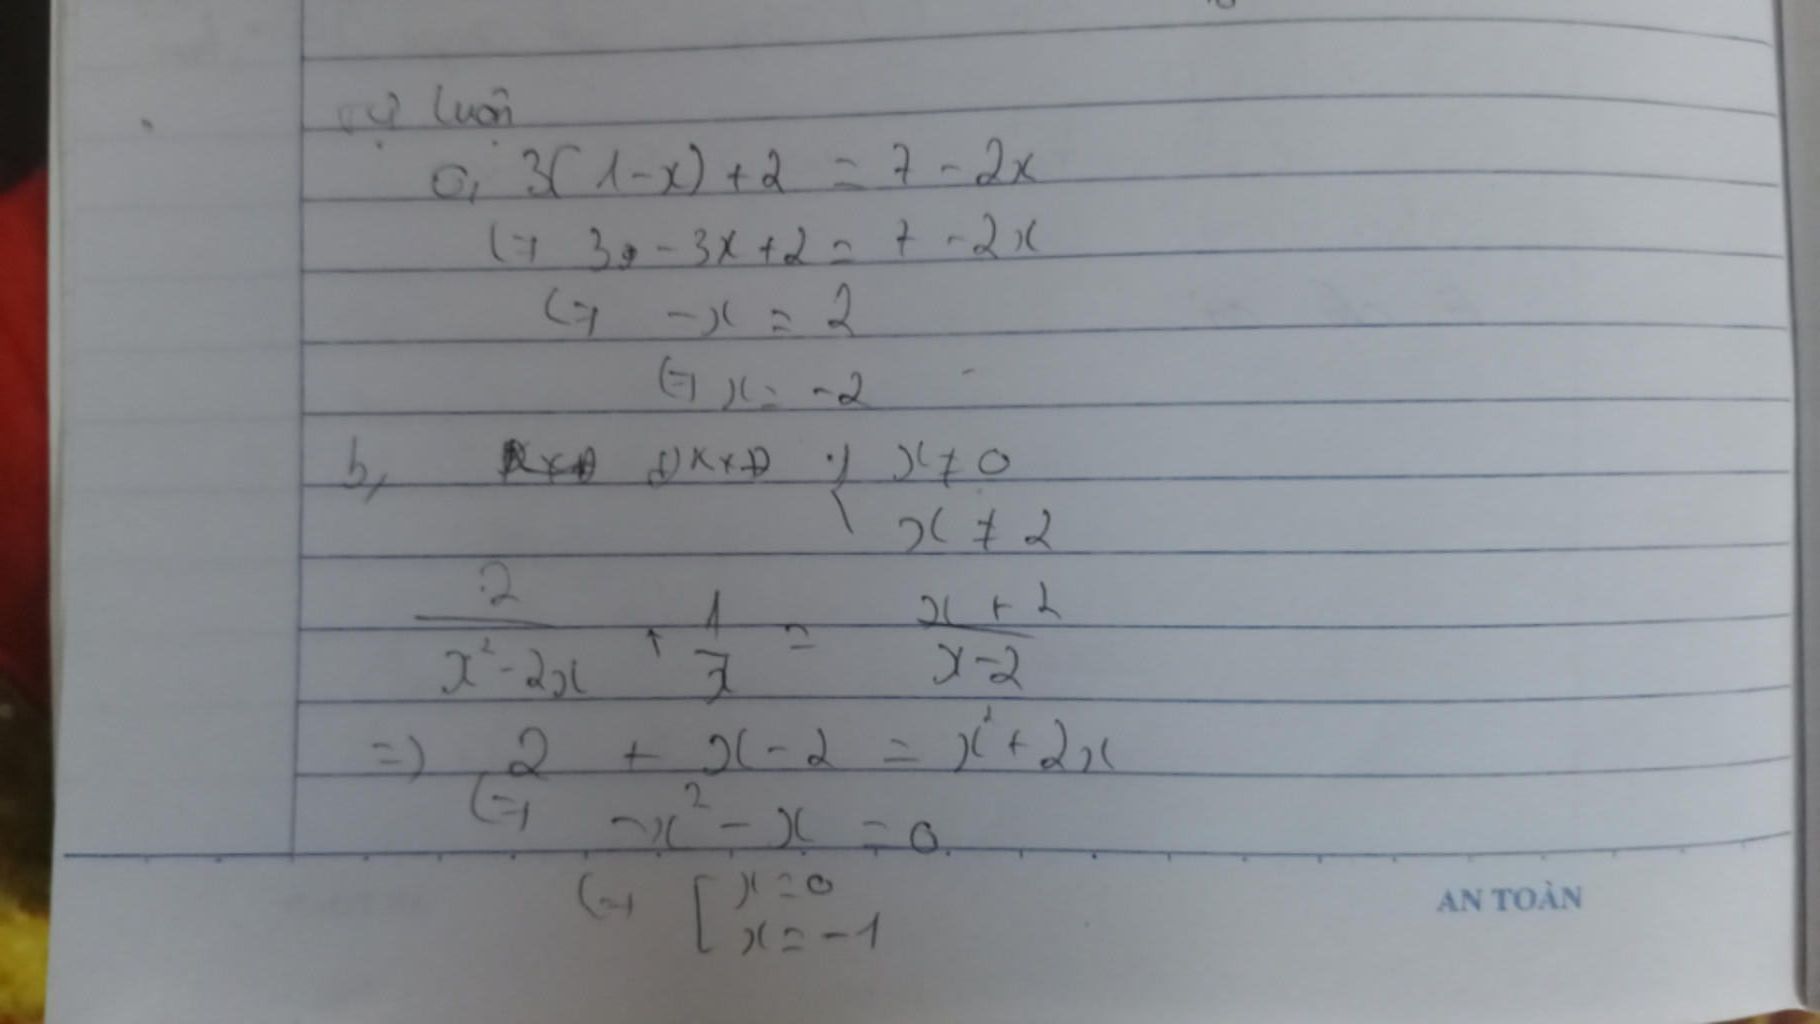 Tự luận
a, 3(1-x) + 2 = 7 - 2x
(=) 3 - 3x + 2 = 7 - 2x
(=) -x = 2
(=) x = -2
b, ĐKXĐ { x ≠ 0
x ≠ 2
2/(x² - 2x) + 1/x = (x + 2)/(x - 2)
=) 2 + x - 2 = x² + 2x
(=) -x² - x = 0
(=) [ x = 0
x = -1
AN TOÀN